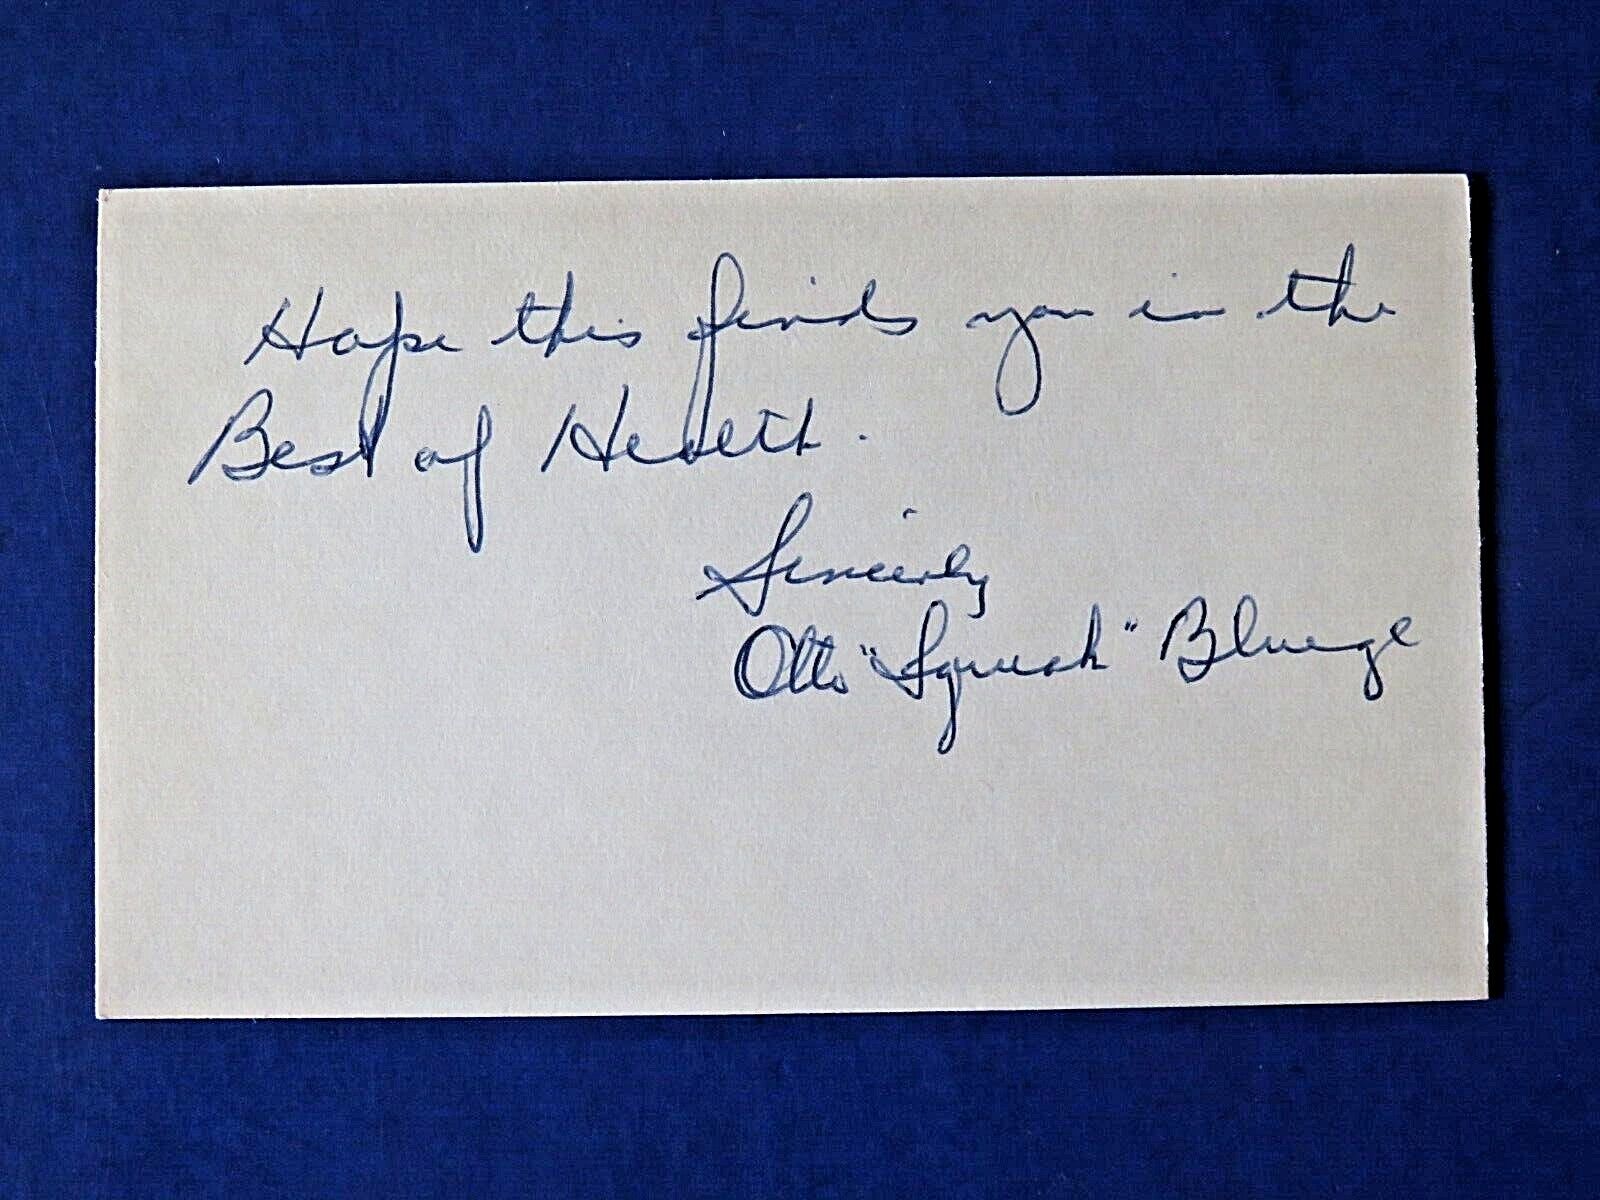 Hope this finds you in the
Best of Health.
Sincerly
Otto "Squeak" Bluege